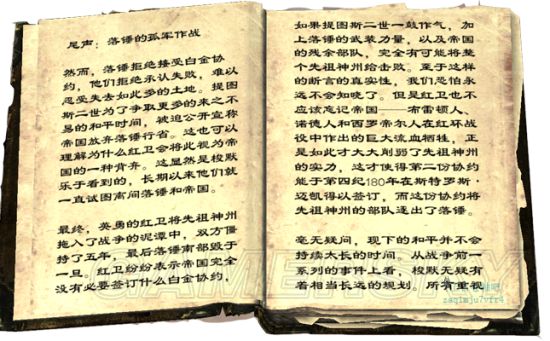 尾声：落锤的孤军作战
然而，落锤拒绝接受白金协
约，他们拒绝承认失败，难以
忍受失去如此多的土地。提图
斯二世为了争取更多的来之不
易的和平时间，被迫公开宣称
帝国放弃落锤行省。这也可以
理解为什么红卫会将此视为帝
国的一种背弃。这显然是梭默
乐于看到的，长期以来他们就
一直试图离间落锤和帝国。
最终，英勇的红卫将先祖神州
拖入了战争的泥潭中，双方僵
持了五年，最后落锤南部毁于
一旦。红卫纷纷表示帝国完全
没有必要签订什么白金协约，
如果提图斯二世一鼓作气，加
上落锤的武装力量，以及帝国
的残余部队，完全有可能将整
个先祖神州给击败。至于这样
的断言的真实性，我们恐怕永
远不会知晓了。但是红卫也不
应该忘记帝国——布雷顿人、
诺德人和西罗帝尔人在红环战
役中作出的巨大流血牺牲，正
是如此才大大削弱了先祖神州
的实力，这才使得第二份协约
能于第四纪180年在斯特罗斯·
迈凯得以签订，而这份协约将
先祖神州的部队逐出了落锤。
毫无疑问，现下的和平并不会
持续太长的时间。从战争前一
系列的事件上看，梭默无疑有
着相当长远的规划。所有重视
GAMERSKY
zaqimju7vfr4